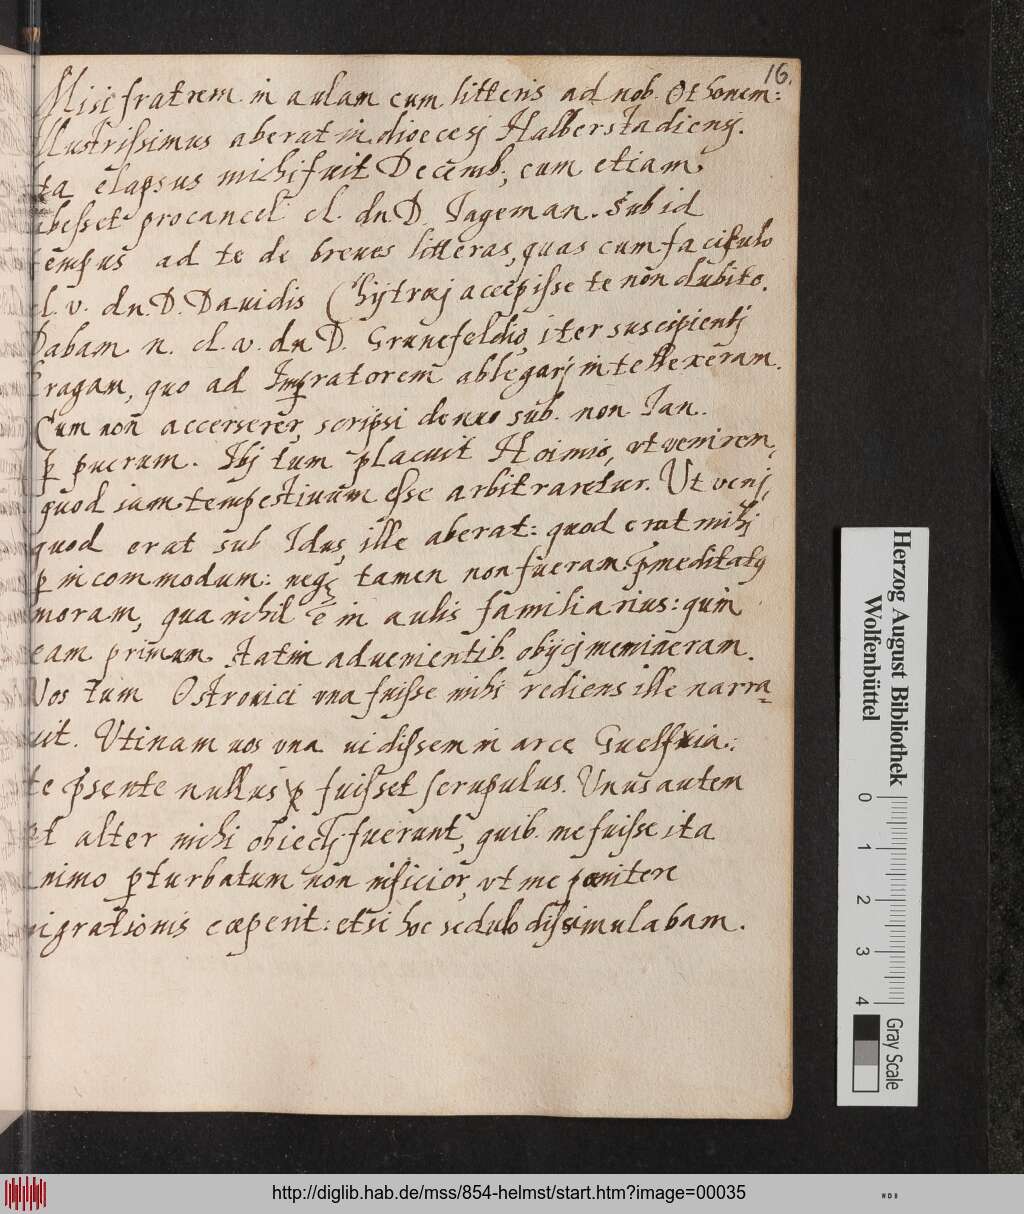 16.
Misi fratrem in aulam cum litteris ad nob. Othonem:
Illustrissimus aberat in dioecesi Halberstadiensj.
ita elapsus mihi fuit Decemb., cum etiam
abesset procancel. cl. dn D. Iageman. Sub id
tempus ad te de breues litteras, quas cum fasciculo
cl. v. dn. D. Dauidis Chytræj accepisse te non dubito.
Dabam n. cl. v. dn D. Grunefeldio, iter suscipientj
Pragam, quo ad Imꝑratorem ablegarj intellexeram.
Cum non accerserer, scripsi denuo sub. non Ian.
ꝑ puerum. Ibj tum placuit Hoimio, vt venirem,
quod iam tempestiuum esse arbitraretur. Ut venj,
quod erat sub Idus, ille aberat: quod erat mihj
ꝑ incommodum: neqꝫ tamen non fueram p̄meditatꝰ
moram, qua nihil ē in aulis familiarius: quin
eam primum statim aduenientib. obijcj memineram.
Vos tum Ostrouici vna fuisse mihi rediens ille narra-
uit. Utinam uos vna uidissem in arce Guelfia:
te p̄sente nullus ꝑ fuisset scrupulus. Unus autem
et alter mihi obiectj fuerunt, quib. me fuisse ita
animo ꝑturbatum non inficior, vt me pœnitere
migrationis cœperit: etsi hoc sedulo dissimulabam.
Herzog August Bibliothek
Wolfenbüttel
0 1 2 3 4
Gray Scale
http://diglib.hab.de/mss/854-helmst/start.htm?image=00035
WDB